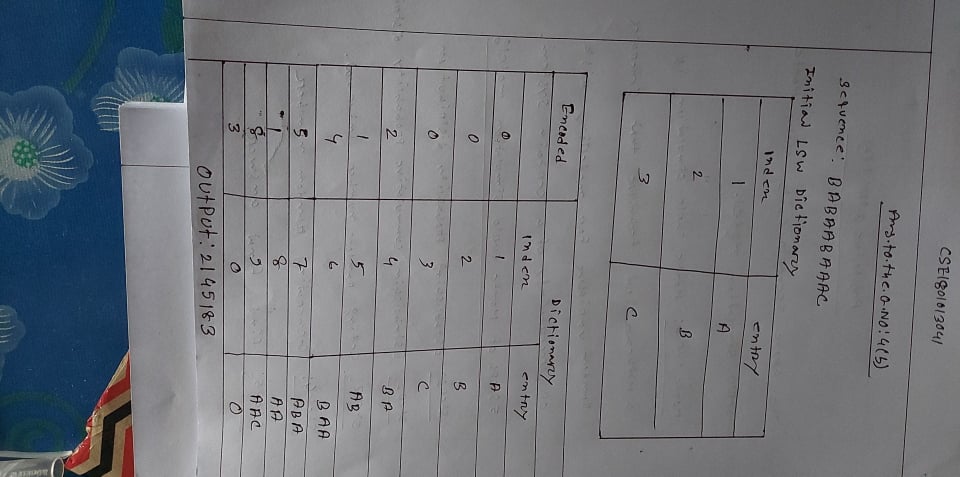 CSE1801013041
Ans.to.the.Q.NO:4(b)
Sequence: BABAABAAAC
Initial LSW Dictionary
Index entry
1 A
2 B
3 C
Encoded Dictionary
Index entry
0 1 A
0 2 B
0 3 C
2 4 BA
1 5 AB
4 6 BAA
5 7 ABA
1 8 AA
8 9 AAC
3 0 0
OUTPUT: 2145183